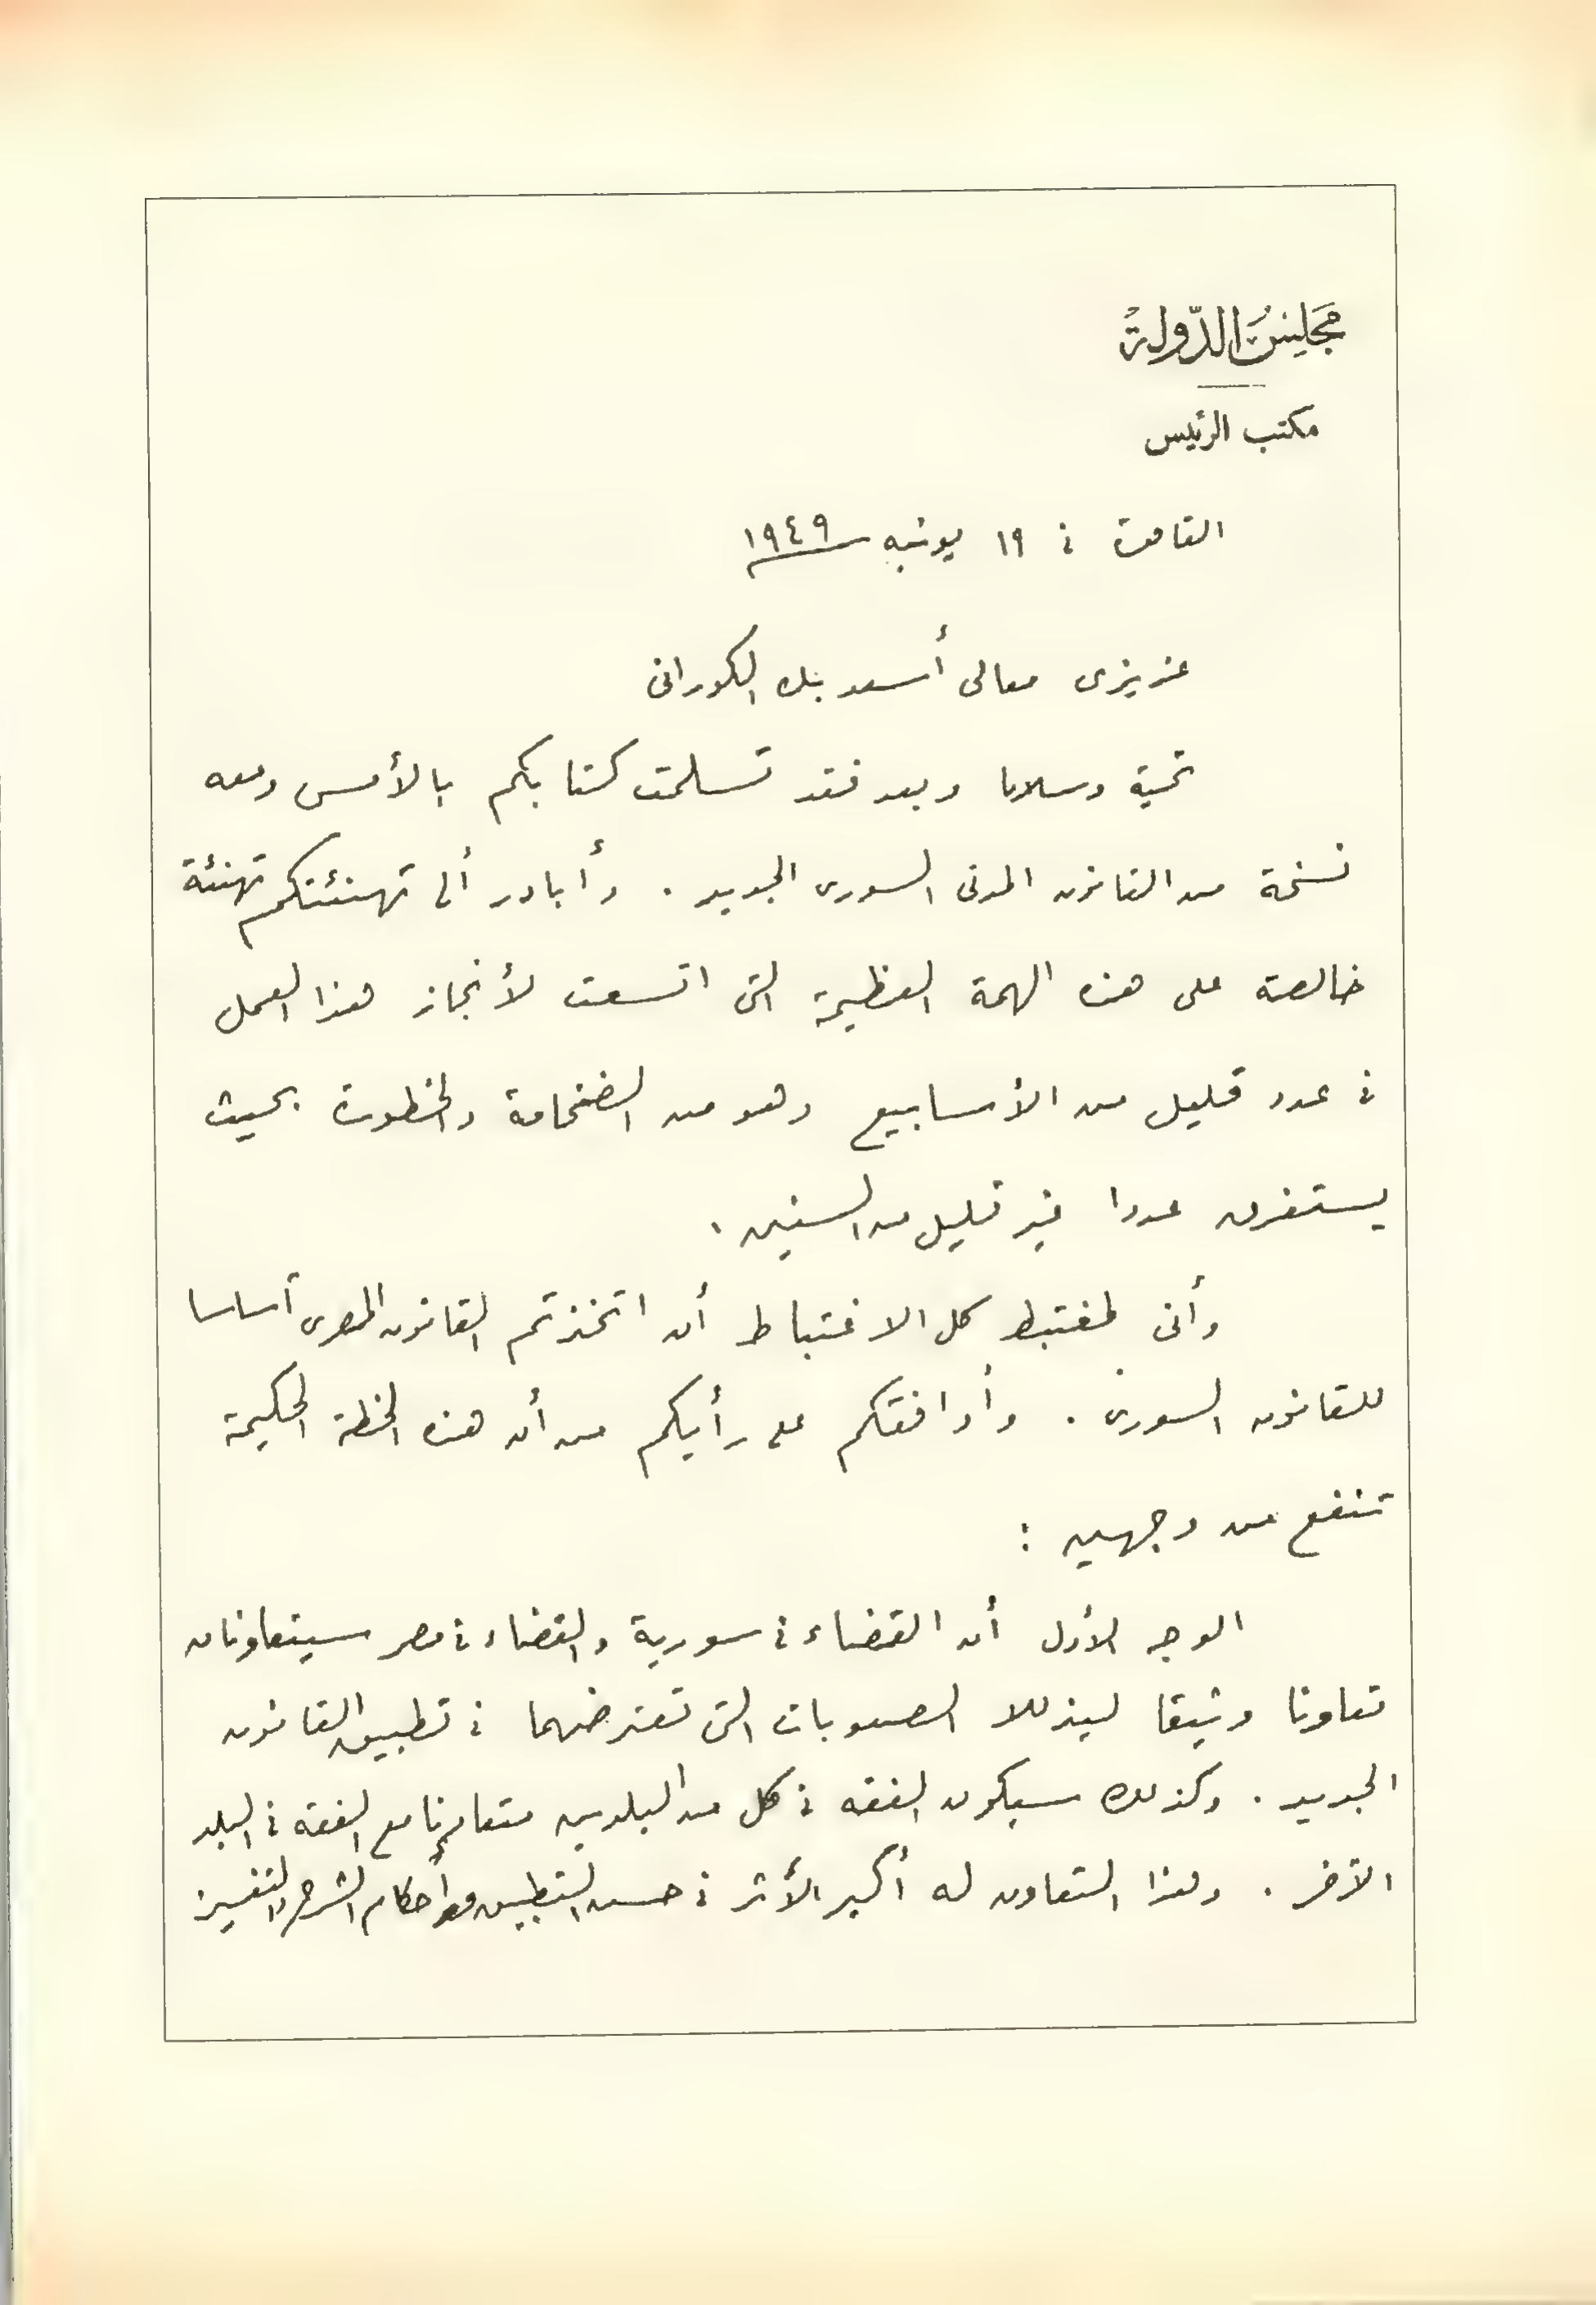 مجلس الدولة
مكتب الرئيس
القاهرة فى ١٩ يونيه سنة ١٩٤٩
عزيزى معالى أسعد بك الكورانى
تحية وسلاما وبعد فقد تسلمت كتابكم بالأمس ومعه
نسخة من القانون المدنى السورى الجديد . وأبادر ألى تهنئتكم تهنئة
خالصة على هذه الهمة العظيمة التى اتسعت لأنجاز هذا العمل
فى عدد قليل من الأسابيع وهو من الضخامة والخطورة بحيث
يستغرق عددا غير قليل من السنين .
وأنى لمغتبط كل الاغتباط أن اتخذتم القانون المصرى أساسا
للقانون السورى . وأوافقكم على رأيكم من أن هذه الخطة الحكيمة
تنفع من وجهين :
الوجه الأول أن القضاء فى سورية والقضاء فى مصر سيتعاونان
تعاونا وثيقا ليذللا الصعوبات التى تعترضهما فى تطبيق القانون
الجديد . وكذلك سيكون الفقه فى كل من البلدين متعاونا مع الفقه فى البلد
الآخر . ولهذا التعاون له أكبر الأثر فى حسن التطبيق وأحكام الشرح والتفسير